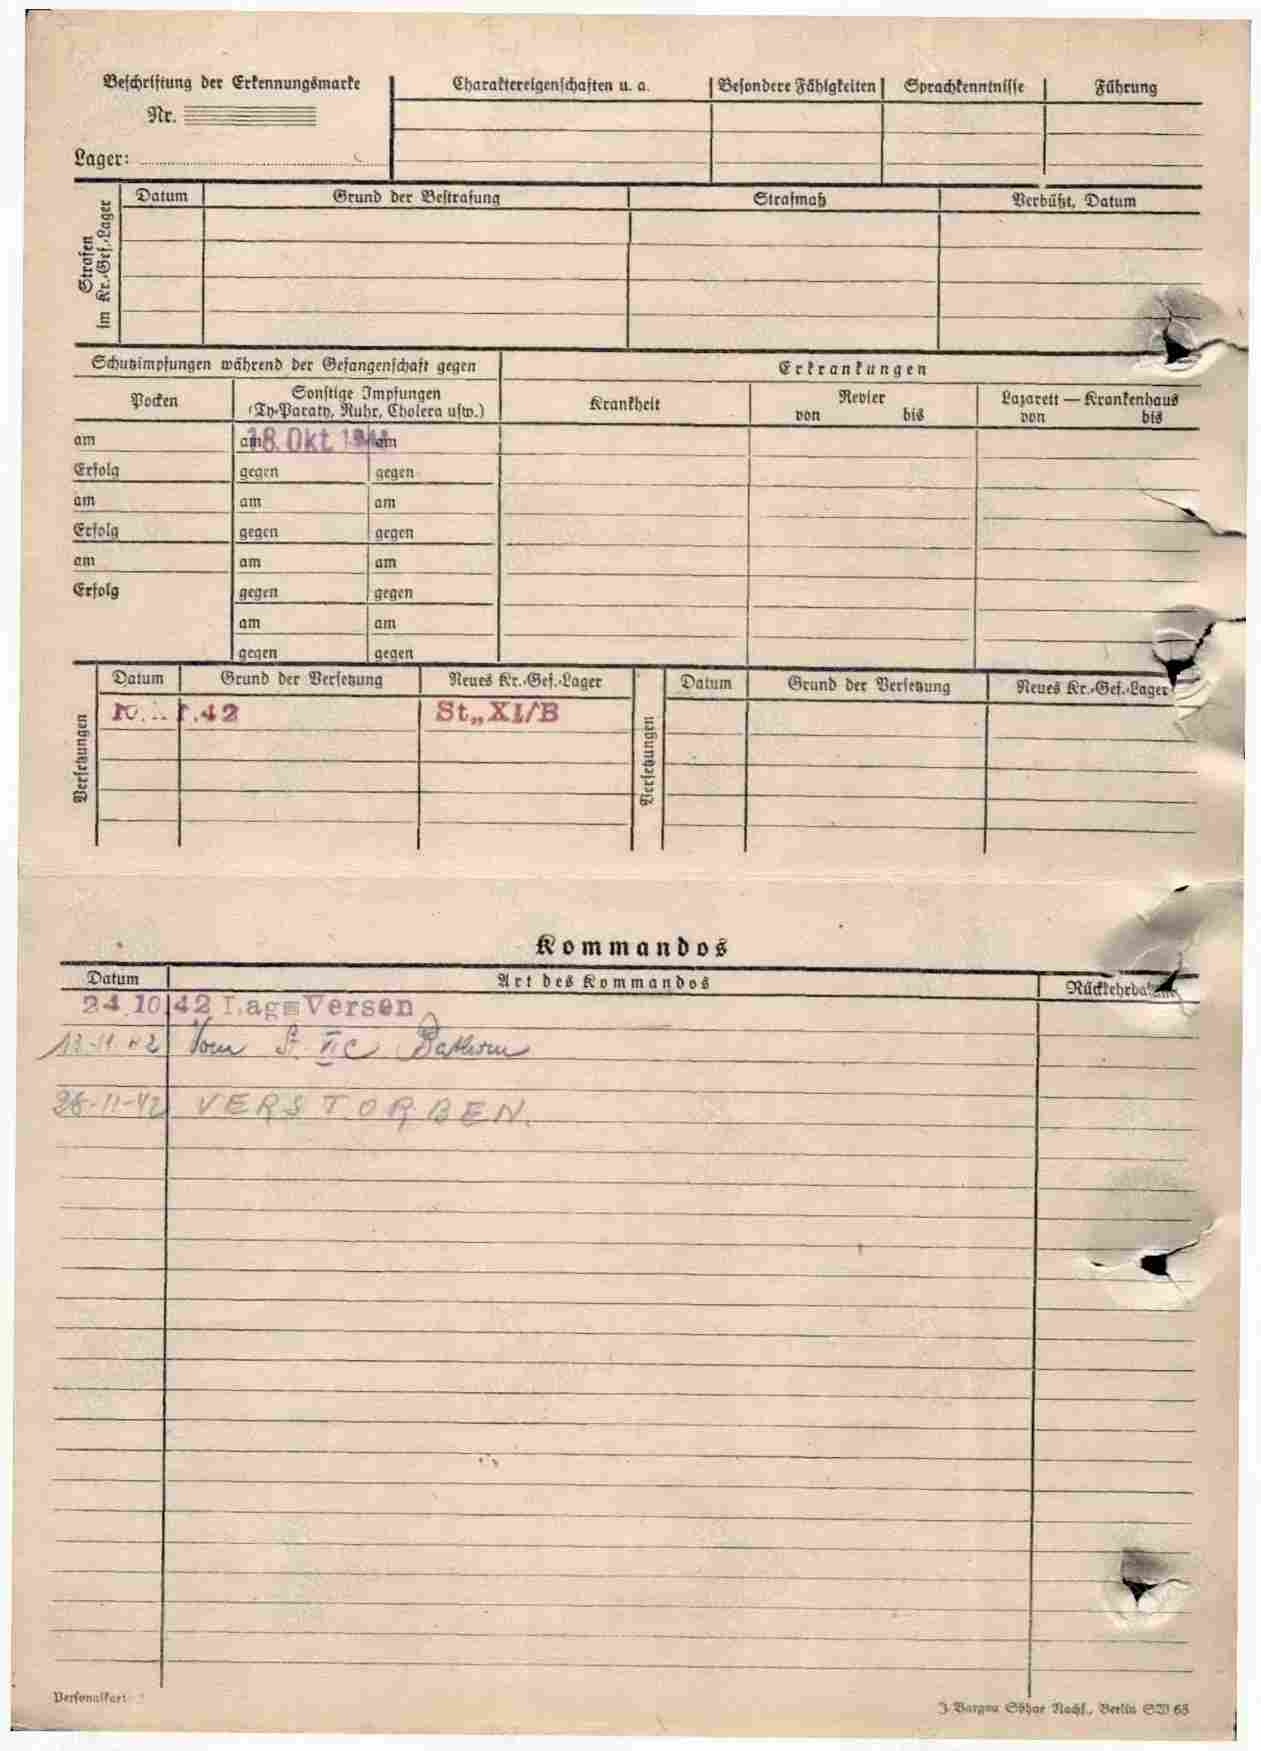 Beschriftung der Erkennungsmarke
Nr.
Lager:
Charaktereigenschaften u. a.
Besondere Fähigkeiten
Sprachkenntnisse
Führung
Strafen
im Kr.-Gef.-Lager
Datum
Grund der Bestrafung
Strafmaß
Verbüßt, Datum
Schutzimpfungen während der Gefangenschaft gegen
Erkrankungen
Pocken
Sonstige Impfungen
(Ty-Paraty, Ruhr, Cholera usw.)
Krankheit
Revier
von bis
Lazarett — Krankenhaus
von bis
am am 18. Okt am
Erfolg gegen gegen
am am am
Erfolg gegen gegen
am am am
Erfolg gegen gegen
am am
gegen gegen
Versetzungen
Datum Grund der Versetzung Neues Kr.-Gef.-Lager
.42 St„XI/B
Versetzungen
Datum Grund der Versetzung Neues Kr.-Gef.-Lager
Kommandos
Datum Art des Kommandos
24.10.42 Lag Versen
Vom St. VI C Bathorn
26-11-42 VERSTORBEN.
Personalkart
Berlin SW 68